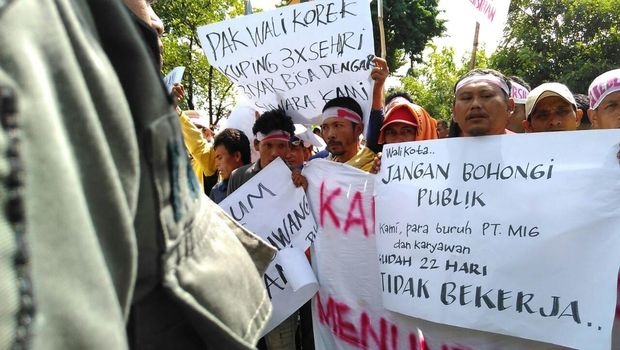 PAK WALI KOREK
KUPING 3X SEHARI
BIAR BISA DENGAR
SUARA KAMI
Wali Kota..
JANGAN BOHONGI
PUBLIK
Kami, para buruh PT. MIG
dan Karyawan
SUDAH 22 HARI
TIDAK BEKERJA..
KA
MENU
UM
UWANG
AN